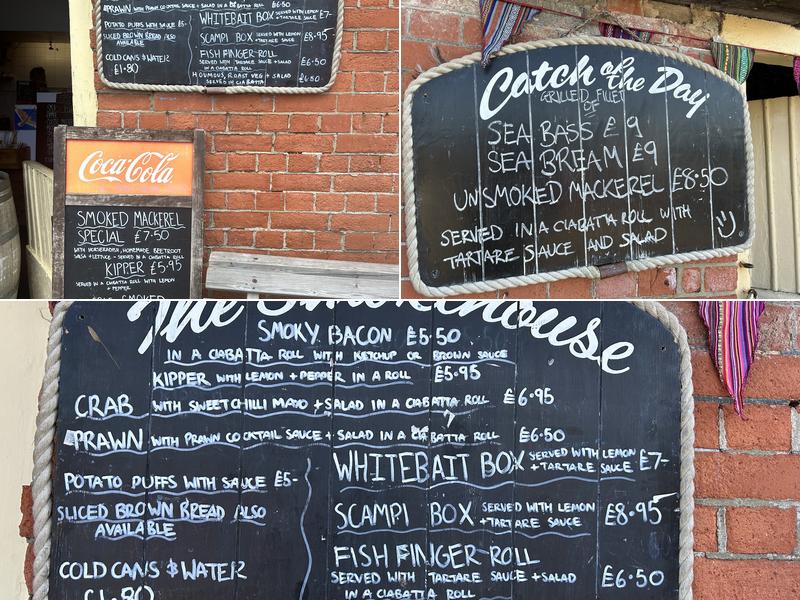 PRAWN WITH PRAWN COCKTAIL SAUCE + SALAD IN A CIABATTA ROLL £6.50
POTATO PUFFS WITH SAUCE £5-
SLICED BROWN BREAD ALSO
AVAILABLE
COLD CANS & WATER
£1.80
WHITEBAIT BOX SERVED WITH LEMON + TARTARE SAUCE £7-
SCAMPI BOX SERVED WITH LEMON + TARTARE SAUCE £8.95
FISH FINGER ROLL
SERVED WITH TARTARE SAUCE + SALAD
IN A CIABATTA ROLL £6.50
HOUMOUS, ROAST VEG + SALAD
SERVED IN CIABATTA £6.50
Coca-Cola
SMOKED MACKEREL
SPECIAL £7.50
WITH HORSERADISH, HOMEMADE BEETROOT
SALSA + LETTUCE - SERVED IN A CIABATTA ROLL
KIPPER £5.95
SERVED IN A CIABATTA ROLL WITH LEMON
+ PEPPER
SMOKED
Catch of the Day
GRILLED FILLET
OF
SEA BASS £9
SEA BREAM £9
UNSMOKED MACKEREL £8.50
SERVED IN A CIABATTA ROLL WITH
TARTARE SAUCE AND SALAD
The Smokehouse
SMOKY BACON £5.50
IN A CIABATTA ROLL WITH KETCHUP OR BROWN SAUCE
KIPPER WITH LEMON + PEPPER IN A ROLL £5.95
CRAB WITH SWEET CHILLI MAYO + SALAD IN A CIABATTA ROLL £6.95
PRAWN WITH PRAWN COCKTAIL SAUCE + SALAD IN A CIABATTA ROLL £6.50
POTATO PUFFS WITH SAUCE £5-
SLICED BROWN BREAD ALSO
AVAILABLE
COLD CANS & WATER
£1.80
WHITEBAIT BOX SERVED WITH LEMON + TARTARE SAUCE £7-
SCAMPI BOX SERVED WITH LEMON + TARTARE SAUCE £8.95
FISH FINGER ROLL
SERVED WITH TARTARE SAUCE + SALAD £6.50
IN A CIABATTA ROLL